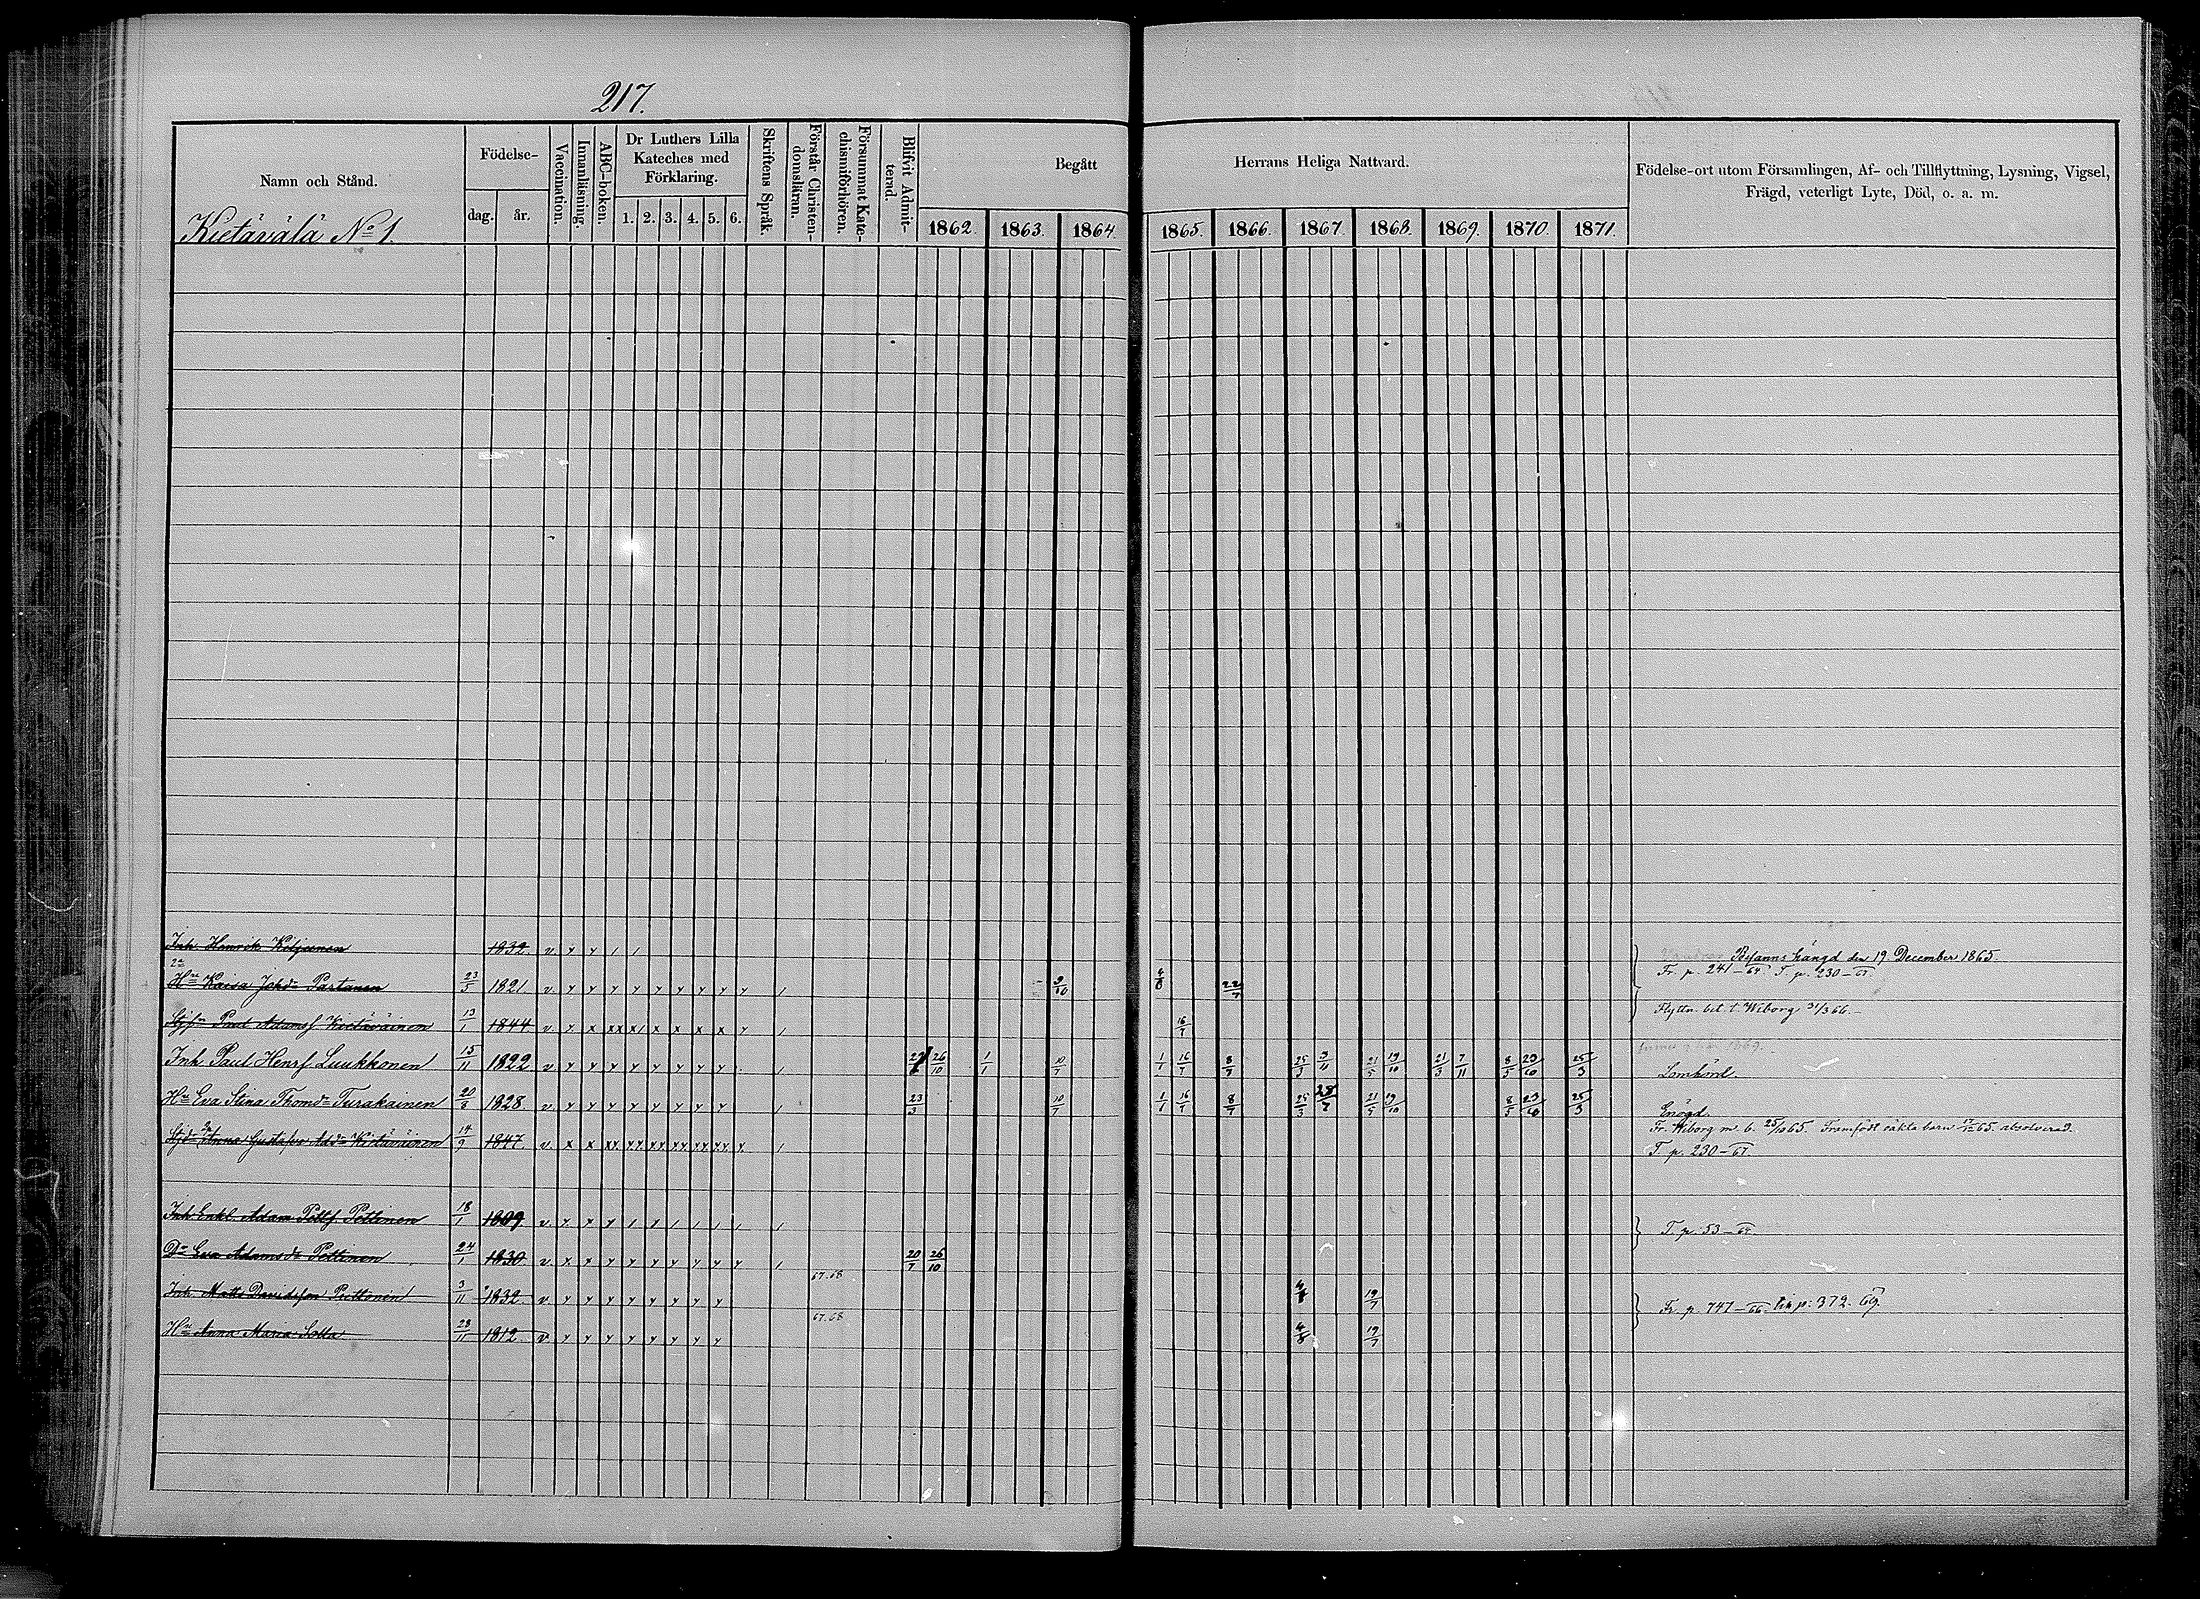 217.
Namn och Stånd.
Kietävälä No 1.
Födelse-
dag. år.
Vaccination.
Innanläsning.
ABC-boken.
Dr Luthers Lilla
Kateches med
Förklaring.
1. 2. 3. 4. 5. 6.
Skriftens Språk.
Förstår Christen-
domsläran.
Försummat Kate-
chismiförhören.
Blifvit Admit-
terad.
Begått Herrans Heliga Nattvard.
1862. 1863. 1864. 1865. 1866. 1867. 1868. 1869. 1870. 1871.
Födelse-ort utom Församlingen, Af- och Tillflyttning, Lysning, Vigsel,
Frägd, veterligt Lyte, Död, o. a. m.
Inh. Henrik Kiljunen 1832. v y y / / Befanns hängd den 19 December 1865.
Hu Kaisa Johdr Partanen 23/5 1821 v y y y y y y y y y / 9/10 22/7 Fr. p. 241-64. T. p. 230-
Paul Adamsf Kietäväinen 13/1 1844 v y x xx x/ x x x x y / 16/7 Flyttn. bet. t. Wiborg 31/3 66.
Inh Paul Henrf Luukkonen 15/11 1822 v y y y y y y y y / 26/10 1/1 10/7 1/1 16/7 8/7 25/3 3/11 21/5 19/10 21/3 7/11 8/5 23/10 25/3 Lomhörd.
Hu Eva Stina Thomdr Turakainen 20/8 1828. v y y y y y y y y / 23/3 10/7 1/1 16/7 8/7 25/3 28/7 21/5 19/10 8/5 23/10 25/3 Enögd.
Anna Gustafva Addr Kietäväinen 14/9 1847. v x x / Fr. Wiborg m. b. 25/10 65. Framfödt oäkta barn 65. absolverad.
T. p. 230-
Inh Enkl. Adam Pettinen 18/1 1809 v y x y / y / / / / / T. p. 53-64.
Dr Eva Adamsdr Pettinen 24/1 1830 v x x y y y y y y y / 20/7 26/10
67.68
Inh. Matts Davidsson Puttonen 3/11 1832. v y y y y y y y y 19/7 Fr. p. 747-66. till p: 372. 69.
67.68
Hu Anna Maria Sotta 28/11 1812. v y y y y y y y y 4/8 19/7